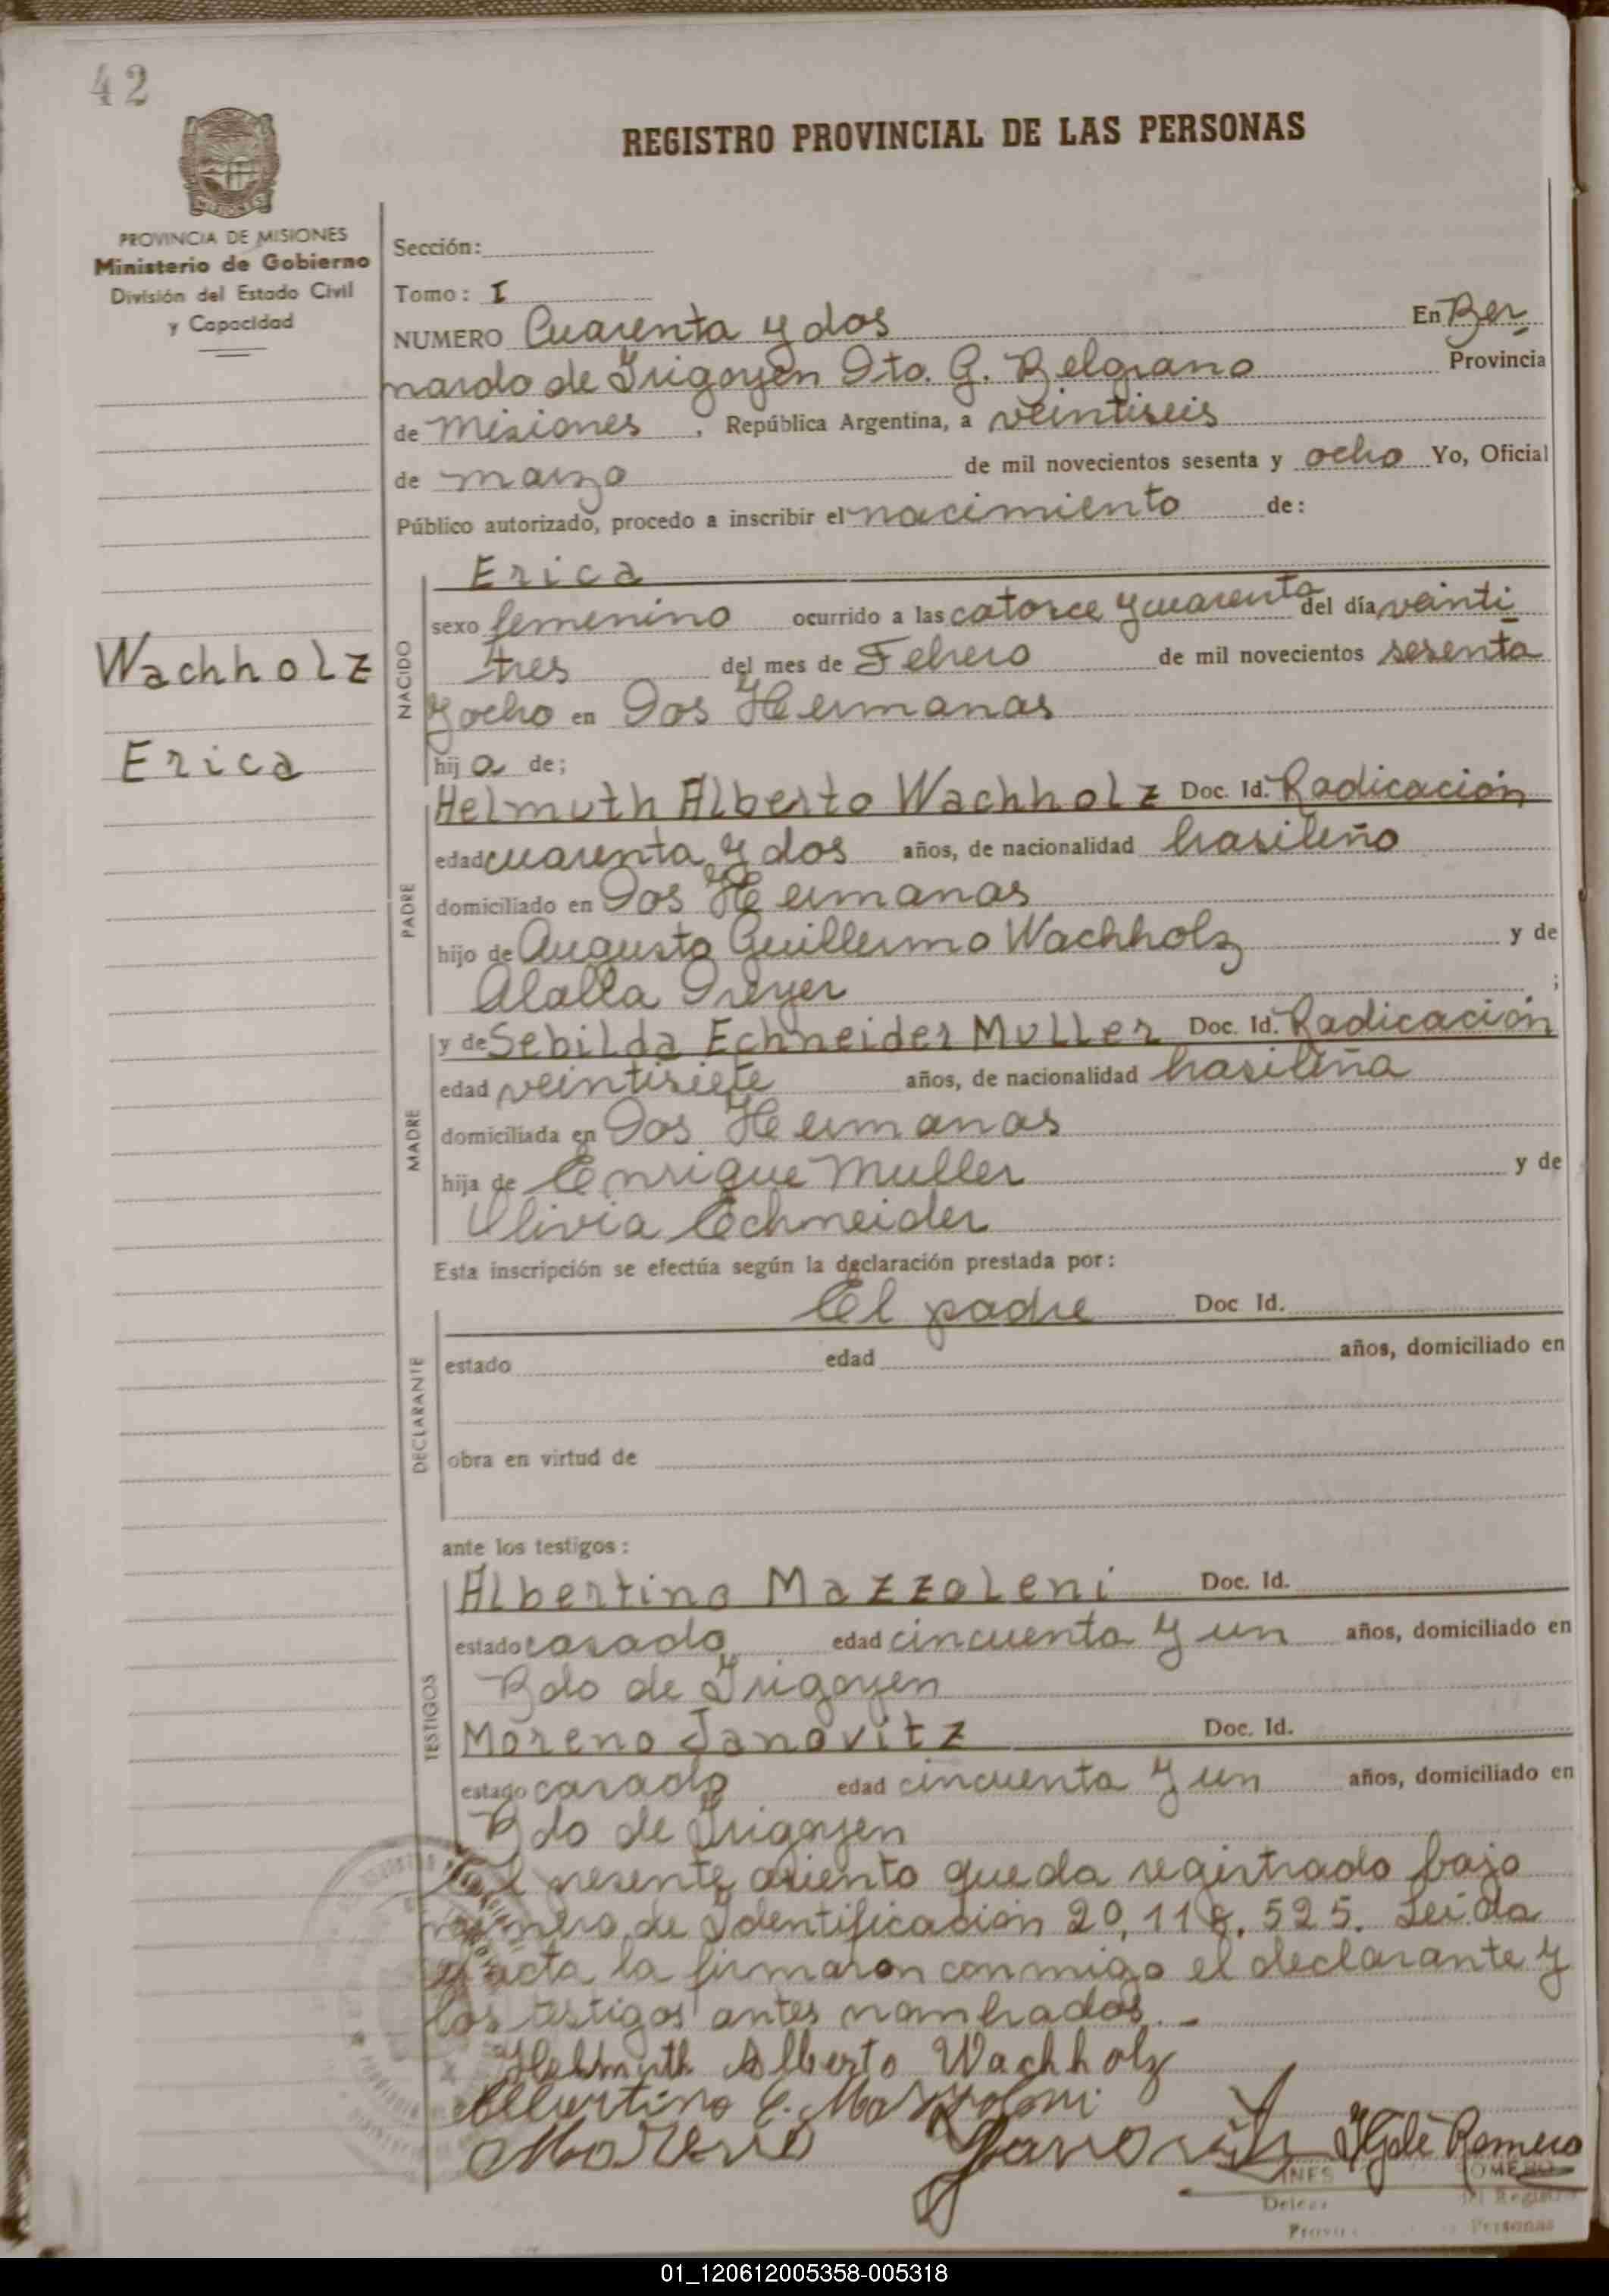 42
REGISTRO PROVINCIAL DE LAS PERSONAS
PROVINCIA DE MISIONES
Ministerio de Gobierno
División del Estado Civil
y Capacidad
Sección:
Tomo: I
NUMERO Cuarenta y dos En Ber
nardo de Irigoyen Dto. G. Belgrano Provincia
de Misiones, República Argentina, a veintiseis
de marzo de mil novecientos sesenta y ocho Yo, Oficial
Público autorizado, procedo a inscribir el nacimiento de:
Wachholz
Erica
NACIDO
Erica
sexo femenino ocurrido a las catorce y cuarenta del día veinti
tres del mes de Febrero de mil novecientos sesenta
y ocho en Dos Hermanas
hija de;
PADRE
Helmuth Alberto Wachholz Doc. Id. Radicación
edad cuarenta y dos años, de nacionalidad brasileño
domiciliado en Dos Hermanas
hijo de Augusto Guillermo Wachholz y de
Alalla Dreyer ;
MADRE
y de Sebilda Echneider Muller Doc. Id. Radicación
edad veintisiete años, de nacionalidad brasileña
domiciliada en Dos Hermanas
hija de Enrique Muller y de
Olivia Echneider
Esta inscripción se efectúa según la declaración prestada por:
DECLARANTE
El padre Doc Id.
estado edad años, domiciliado en
obra en virtud de
ante los testigos:
TESTIGOS
Albertino Mazzoleni Doc. Id.
estado casado edad cincuenta y un años, domiciliado en
Bdo de Irigoyen
Moreno Janovitz Doc. Id.
estado casado edad cincuenta y un años, domiciliado en
Bdo de Irigoyen
El presente asiento queda registrado bajo
número de Identificación 20,118.525. Leída
el acta la firmaron conmigo el declarante y
los testigos antes nombrados.-
Helmuth Alberto Wachholz
Albertino E. Mazzoleni
Moreno Janovitz Romero
INES ROMERO
del Registro
Personas
01_120612005358-005318